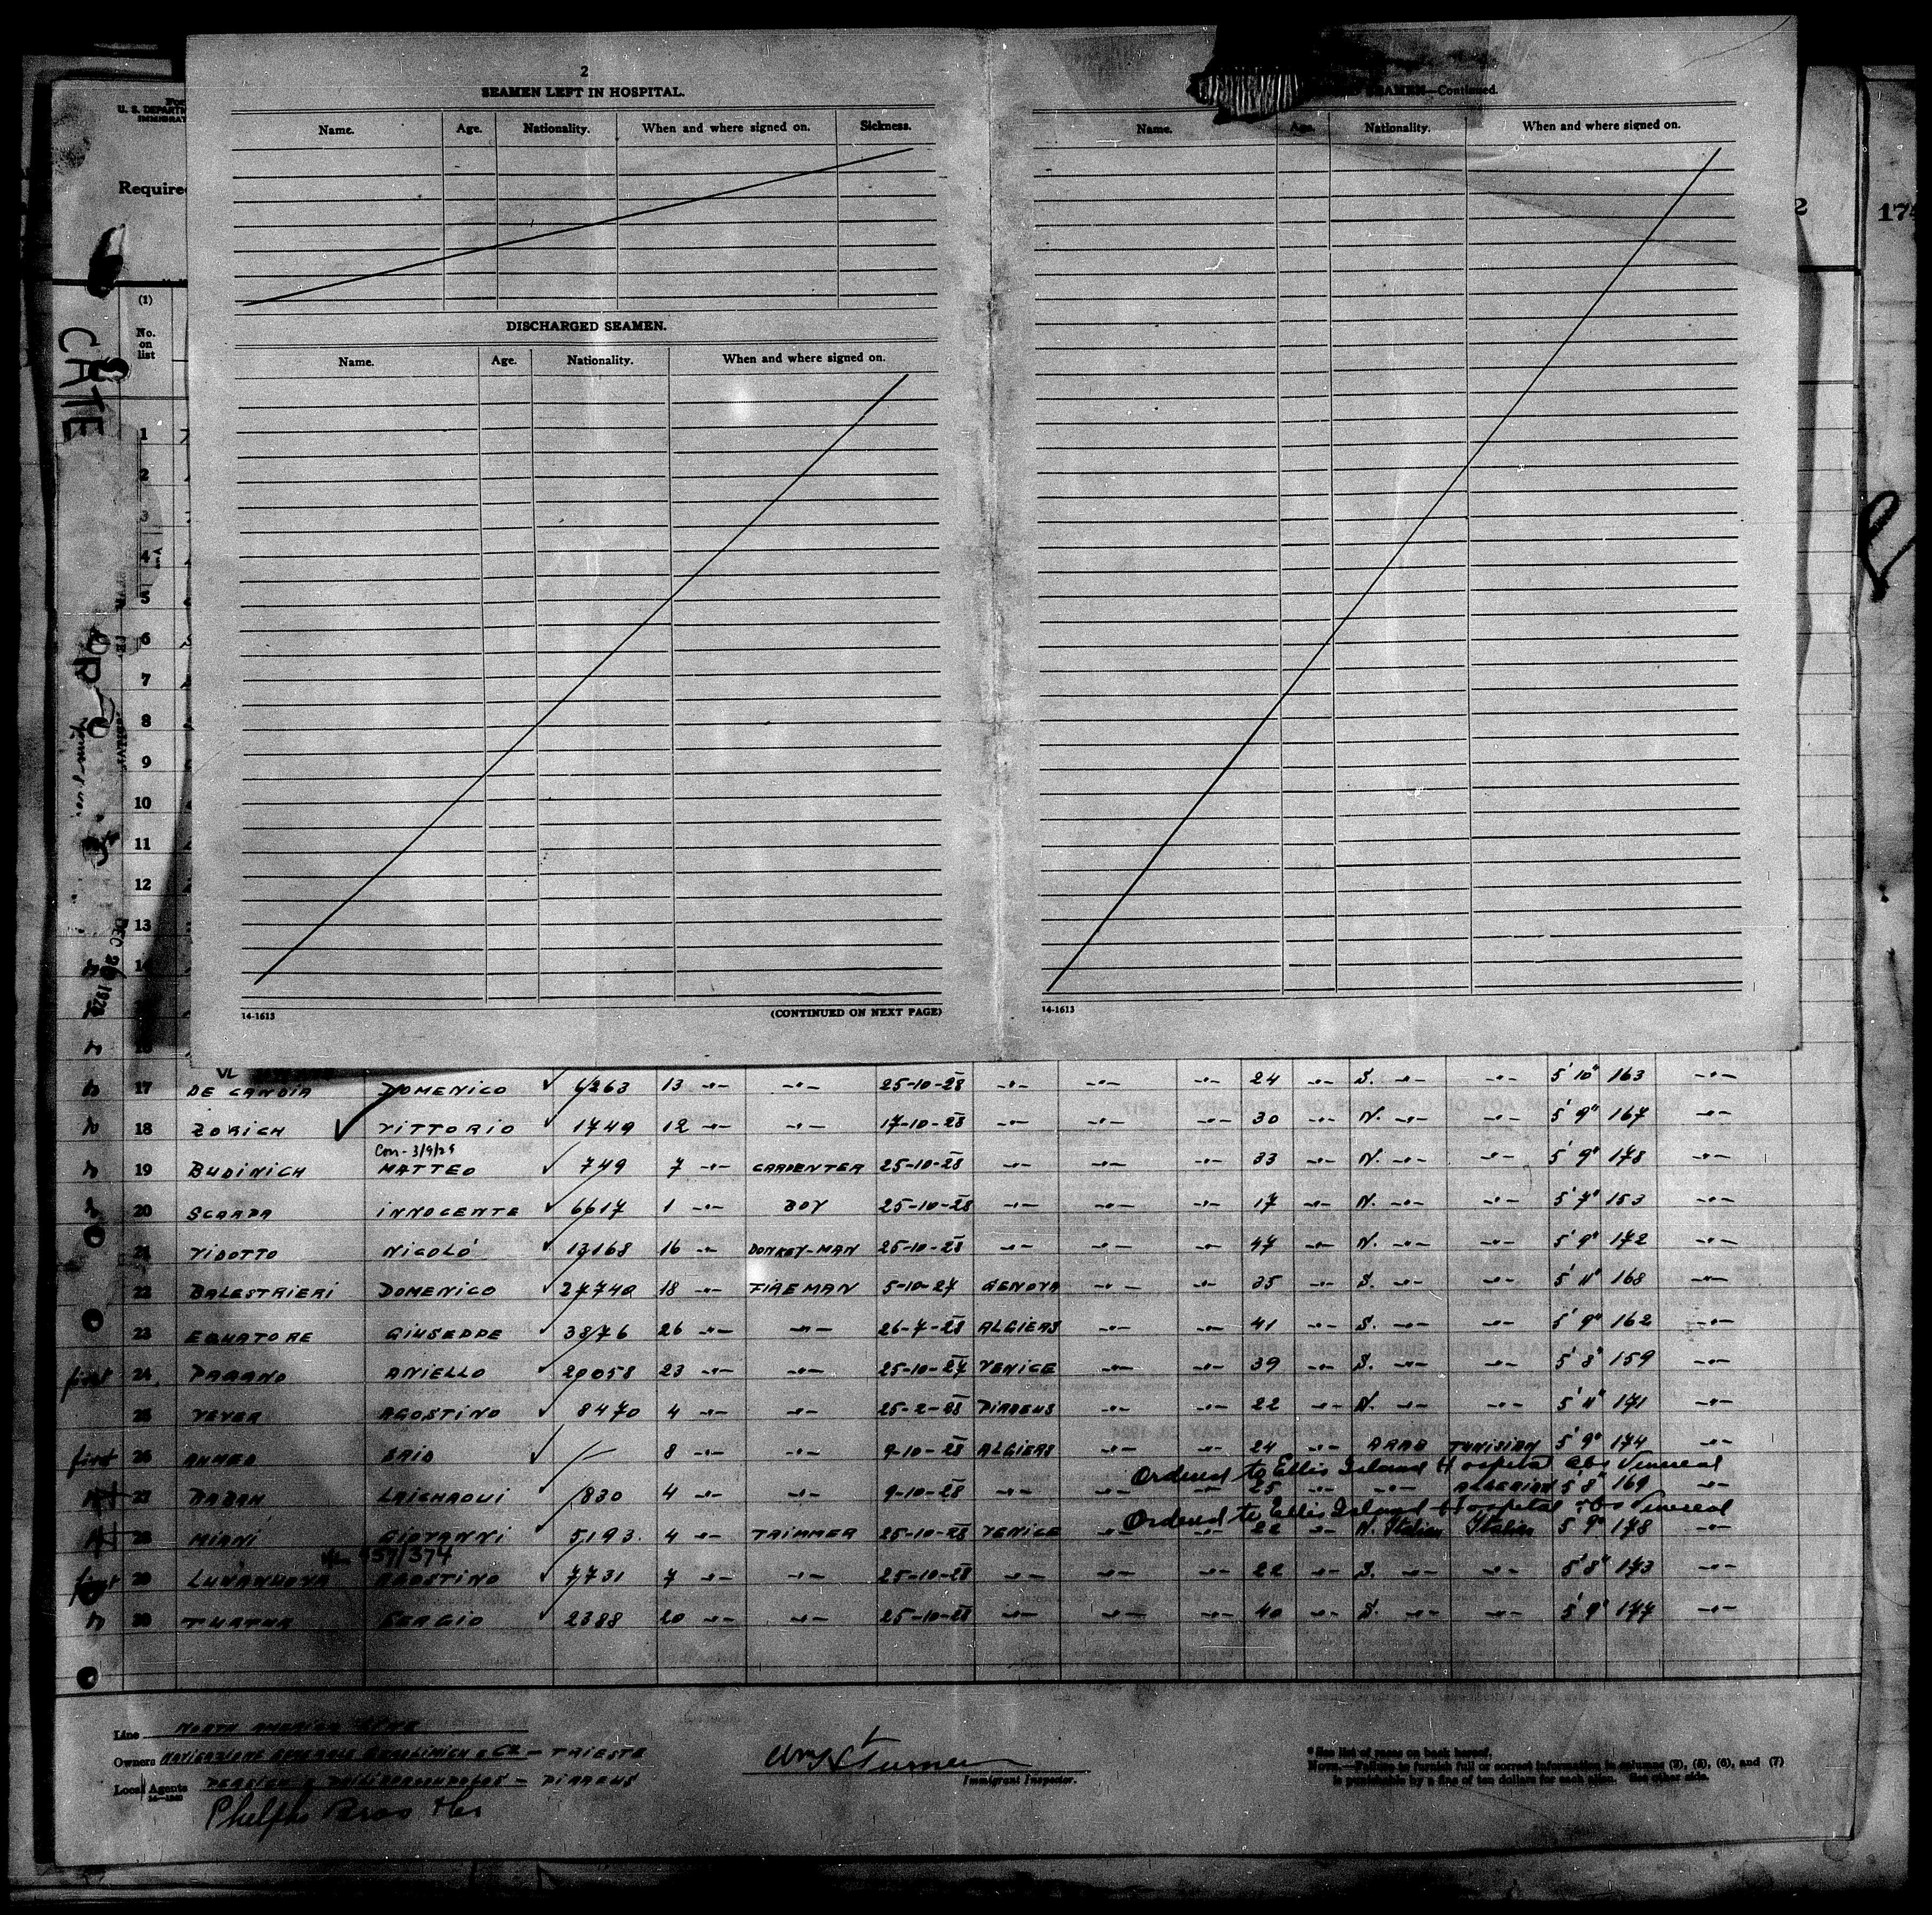 2
SEAMEN LEFT IN HOSPITAL.
Name. Age. Nationality. When and where signed on. Sickness.
DISCHARGED SEAMEN.
Name. Age. Nationality. When and where signed on.
14-1613 (CONTINUED ON NEXT PAGE)
SEAMEN—Continued.
Name. Age. Nationality. When and where signed on.
14-1613
U. S. DEPART
IMMIGRAT
Require
2
17
(1)
No.
on
list
CATE
1
2
3
4
5
6
7
8
9
10
11
12
13
14
DEC 26 192
17 DE CANDIA DOMENICO ✓ 6263 13 -"- -"- 25-10-28 -"- -"- -"- 24 -"- S. -"- -"- 5' 10" 163 -"-
18 ZORICH VITTORIO ✓ 1749 12 -"- -"- 17-10-28 -"- -"- -"- 30 -"- N. -"- -"- 5' 9" 167 -"-
Con- 3/9/29
19 BUDINICH MATTEO ✓ 749 7 -"- CARPENTER 25-10-28 -"- -"- -"- 33 -"- N. -"- -"- 5' 9" 178 -"-
20 SCARPA INNOCENTE ✓ 6617 1 -"- BOY 25-10-28 -"- -"- -"- 17 -"- N. -"- -"- 5' 7" 153 -"-
21 VIDOTTO NICOLÓ ✓ 13168 16 -"- DONKEY-MAN 25-10-28 -"- -"- -"- 47 -"- N. -"- -"- 5' 9" 172 -"-
22 BALESTRIERI DOMENICO ✓ 27740 18 -"- FIREMAN 5-10-27 GENOVA -"- -"- 35 -"- S. -"- -"- 5' 11" 168 -"-
23 EQUATORE GIUSEPPE ✓ 3876 26 -"- -"- 26-7-28 ALGIERS -"- -"- 41 -"- S. -"- -"- 5' 9" 162 -"-
first 24 PAGANO ANIELLO ✓ 20058 23 -"- -"- 25-10-27 VENICE -"- -"- 39 -"- S. -"- -"- 5' 8" 159 -"-
25 VEVER AGOSTINO ✓ 8470 4 -"- -"- 25-2-28 PIRAEUS -"- -"- 22 -"- N. -"- -"- 5' 11" 171 -"-
first 26 AHMED SAID ✓ 8 -"- -"- 9-10-28 ALGIERS -"- -"- 24 -"- ARAB TUNISIAN 5' 9" 174 -"-
Ordered to Ellis Island Hospital obs Venereal
27 RABAH LAICHAOUI ✓ 830 4 -"- -"- 9-10-28 -"- -"- -"- 25 -"- -"- ALGERIAN 5' 8" 169 -"-
Ordered to Ellis Island Hospital obs Venereal
28 MIANI GIOVANNI ✓ 5193 4 -"- TRIMMER 25-10-28 VENICE -"- -"- 22 -"- N. Italian Italian 5' 9" 178 -"-
437/374
first 29 AGOSTINO ✓ 7731 7 -"- -"- 25-10-28 -"- -"- -"- 22 -"- S. -"- -"- 5' 8" 173 -"-
30 SERGIO ✓ 2388 20 -"- -"- 25-10-28 -"- -"- -"- 40 -"- S. -"- -"- 5' 9" 177 -"-
Line NORTH AMERICA LINE
Owners NAVIGAZIONE GENERALE GEROLIMICH & Co. - TRIESTE
Local Agents - PIRAEUS
Phelps Bros & Co
Wm H Turner
Immigrant Inspector.
* See list of races on back hereof.
NOTE.—Failure to furnish full or correct information in columns (2), (5), (6), and (7)
is punishable by a fine of ten dollars for each alien. See other side.